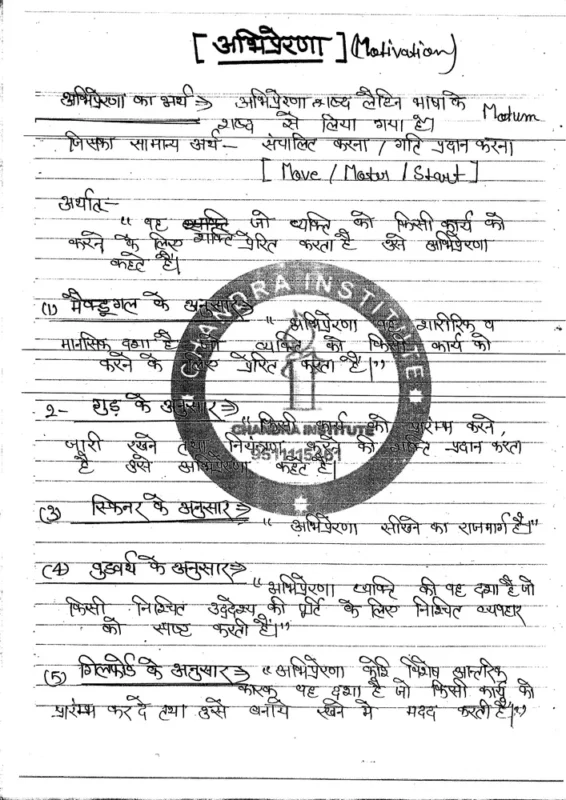 [ अभिप्रेरणा ] (Motivation)
अभिप्रेरणा का अर्थ ⇒ अभिप्रेरणा शब्द लैटिन भाषा के Motum
शब्द से लिया गया है।
जिसका सामान्य अर्थ - संचालित करना / गति प्रदान करना।
[ Move / Motor / Start ]
अर्थात-
" वह जो व्यक्ति को किसी कार्य को
करने के लिए व्यक्ति प्रेरित करता है उसे अभिप्रेरणा
कहते हैं।
(1) मैक्डूगल के अनुसार ⇒
" अभिप्रेरणा वह शारीरिक व
मानसिक दशा है जो व्यक्ति को किसी कार्य को
करने के लिए प्रेरित करता है।"
2- गुड के अनुसार ⇒ " किसी कार्य को प्रारम्भ करने,
जारी रखने तथा नियंत्रण करने की शक्ति प्रदान करता
है उसे अभिप्रेरणा कहते हैं।
(3) स्किनर के अनुसार ⇒
" अभिप्रेरणा सीखने का राजमार्ग है।"
(4) वुडवर्थ के अनुसार ⇒
" अभिप्रेरणा व्यक्ति की वह दशा है जो
किसी निश्चित उद्देश्य की पूर्ति के लिए निश्चित व्यवहार
को स्पष्ट करती है।"
(5) गिलफोर्ड के अनुसार ⇒ " अभिप्रेरणा कोई विशेष आन्तरिक
कारक वह दशा है जो किसी कार्य को
प्रारम्भ कर दे तथा उसे बनाये रखने मे मदद करती है।"
CHANDRA INSTITUTE
CHANDRA INSTITUTE